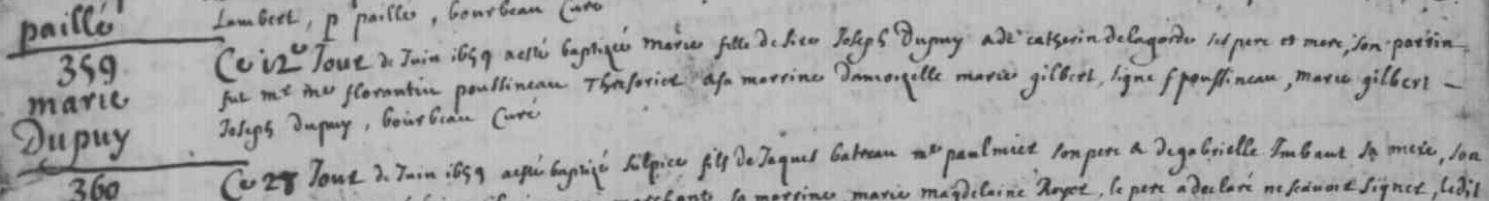 paillé
Lambert, p paille, bourbeau Curé
359
marie
Dupuy
Ce 12e Jour de Juin 1659 aesté baptizée Marie fille de sire Joseph Dupuy & de catherin delagarde ses pere et mere, son parrin
fut me florantin poussineau Thresorier & sa marrine damoizelle marie gilbert, signe f poussineau, marie gilbert —
Joseph Dupuy, bourbeau Curé
360
Ce 28 Jour de Juin 1659 aesté baptizé Sulpice fils de Jaques batreau me paulmier son pere & de gabrielle Imbaut sa mere, son
marchant sa marrine marie magdelaine Royer, le pere a declaré ne scavoir signer, ledit